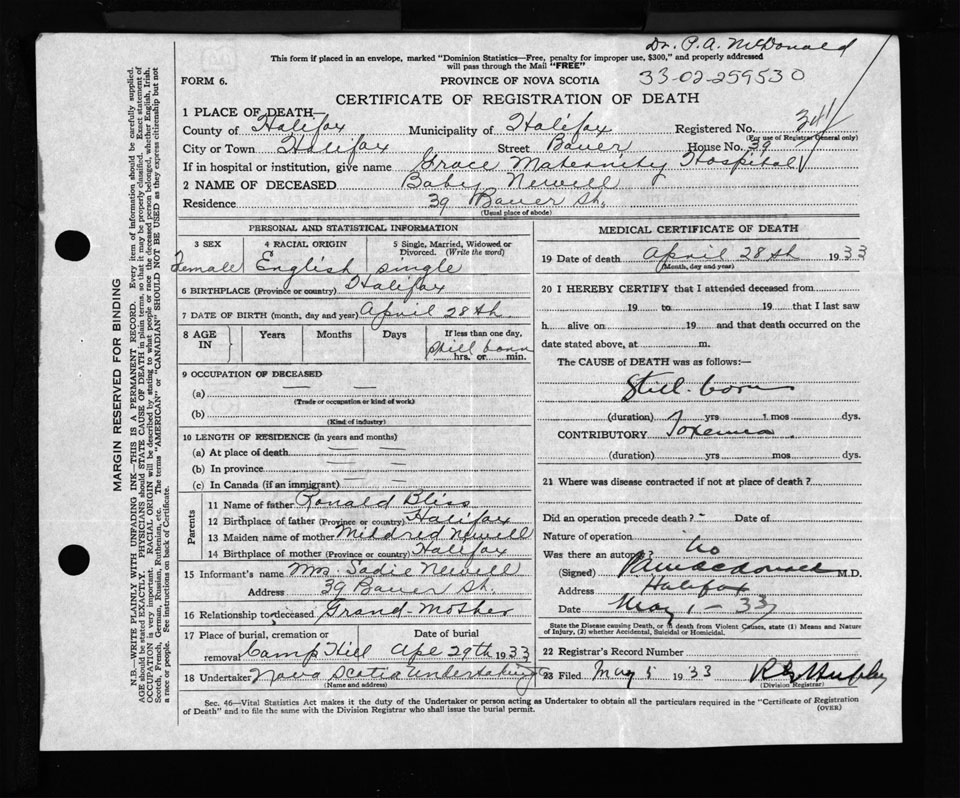 Dr. P. A. McDonald
This form if placed in an envelope, marked "Dominion Statistics—Free, penalty for improper use, $300," and properly addressed
will pass through the Mail "FREE"
33-02-259530
FORM 6.
PROVINCE OF NOVA SCOTIA
CERTIFICATE OF REGISTRATION OF DEATH
1 PLACE OF DEATH—
County of Halifax Municipality of Halifax Registered No.
(For use of Registrar General only)
City or Town Halifax Street Bauer House No. 39
If in hospital or institution, give name Grace Maternity Hospital
2 NAME OF DECEASED Baby Newell
Residence 39 Bauer St.
(Usual place of abode)
PERSONAL AND STATISTICAL INFORMATION
3 SEX 4 RACIAL ORIGIN 5 Single, Married, Widowed or Divorced. (Write the word)
Female English single
6 BIRTHPLACE (Province or country) Halifax
7 DATE OF BIRTH (month, day and year) April 28th
8 AGE IN Years Months Days If less than one day,
still born
hrs. or min.
9 OCCUPATION OF DECEASED
(a) — —
(Trade or occupation or kind of work)
(b)
(Kind of industry)
10 LENGTH OF RESIDENCE (in years and months)
(a) At place of death — —
(b) In province — —
(c) In Canada (if an immigrant) — —
Parents
11 Name of father Ronald Bliss
12 Birthplace of father (Province or country) Halifax
13 Maiden name of mother Mildred Newell
14 Birthplace of mother (Province or country) Halifax
15 Informant's name Mrs. Sadie Newell
Address 39 Bauer St.
16 Relationship to deceased Grand-Mother
17 Place of burial, cremation or removal Camp Hill Date of burial Apl 29th 1933
18 Undertaker Nova Scotia Undertaking
(Name and address)
MEDICAL CERTIFICATE OF DEATH
19 Date of death April 28th 1933
(Month, day and year)
20 I HEREBY CERTIFY that I attended deceased from
19 to 19 that I last saw
h alive on 19 and that death occurred on the
date stated above, at m.
The CAUSE of DEATH was as follows:—
Still-born
(duration) yrs mos dys.
CONTRIBUTORY Toxemia.
(duration) yrs mos dys.
21 Where was disease contracted if not at place of death?
Did an operation precede death? - Date of
Nature of operation
Was there an autopsy? No
(Signed) M.D.
Address Halifax
Date May 1-33
State the Disease causing Death, or in death from Violent Causes, state (1) Means and Nature
of Injury, (2) whether Accidental, Suicidal or Homicidal.
22 Registrar's Record Number
23 Filed May 5 1933
(Division Registrar)
Sec. 46—Vital Statistics Act makes it the duty of the Undertaker or person acting as Undertaker to obtain all the particulars required in the "Certificate of Registration
of Death" and to file the same with the Division Registrar who shall issue the burial permit.
(OVER)
MARGIN RESERVED FOR BINDING
N.B.—WRITE PLAINLY WITH UNFADING INK—THIS IS A PERMANENT RECORD. Every item of information should be carefully supplied.
AGE should be stated EXACTLY. PHYSICIANS should STATE CAUSE OF DEATH in plain terms, so that it may be properly classified. Exact statement of
OCCUPATION is very important. RACIAL ORIGIN will be described by stating to what people or race the deceased person belonged, whether English, Irish,
Scotch, French, German, Russian, Ruthenian, etc. The terms "AMERICAN" or "CANADIAN" SHOULD NOT BE USED as they express citizenship but not
a race or people. See instructions on back of Certificate.